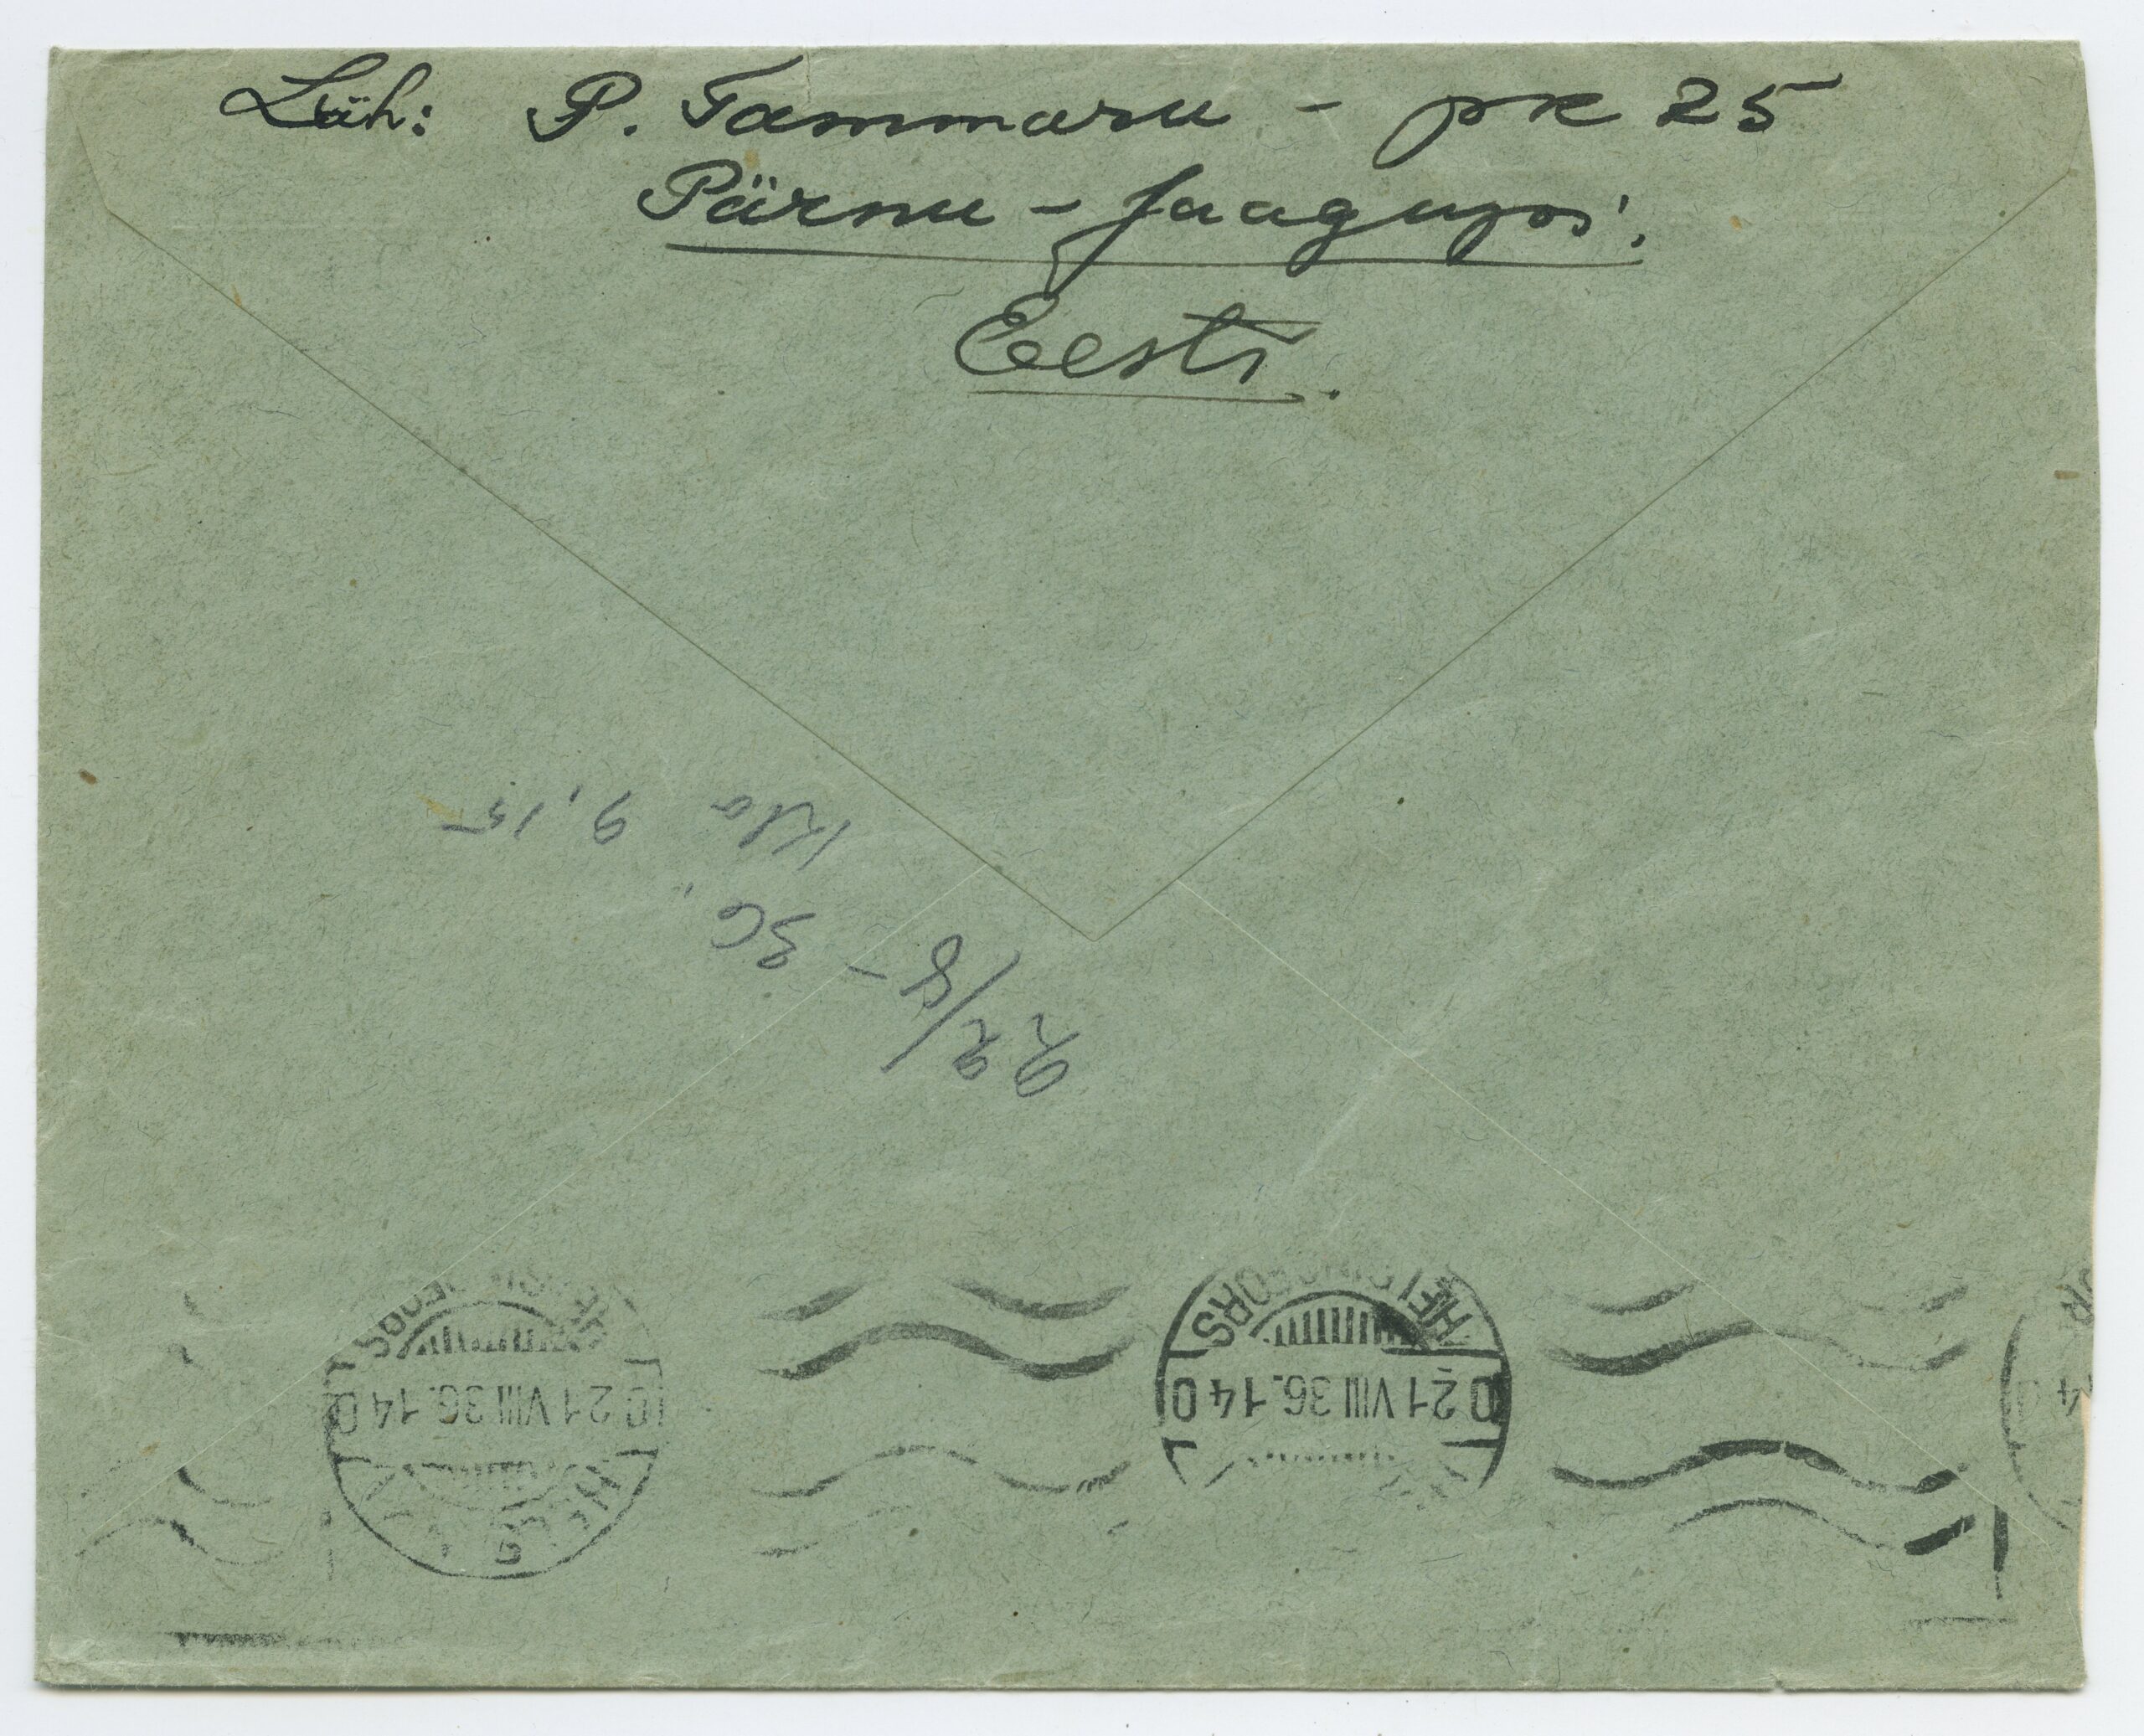 Läh: P. Tammaru - pk 25
Pärnu - Jaagupi.
Eesti.
Kla 9,15
22/8 - 36.
HELSINGFORS
21 VIII 36. 14 0
HELSINGFORS
21 VIII 36. 14 0